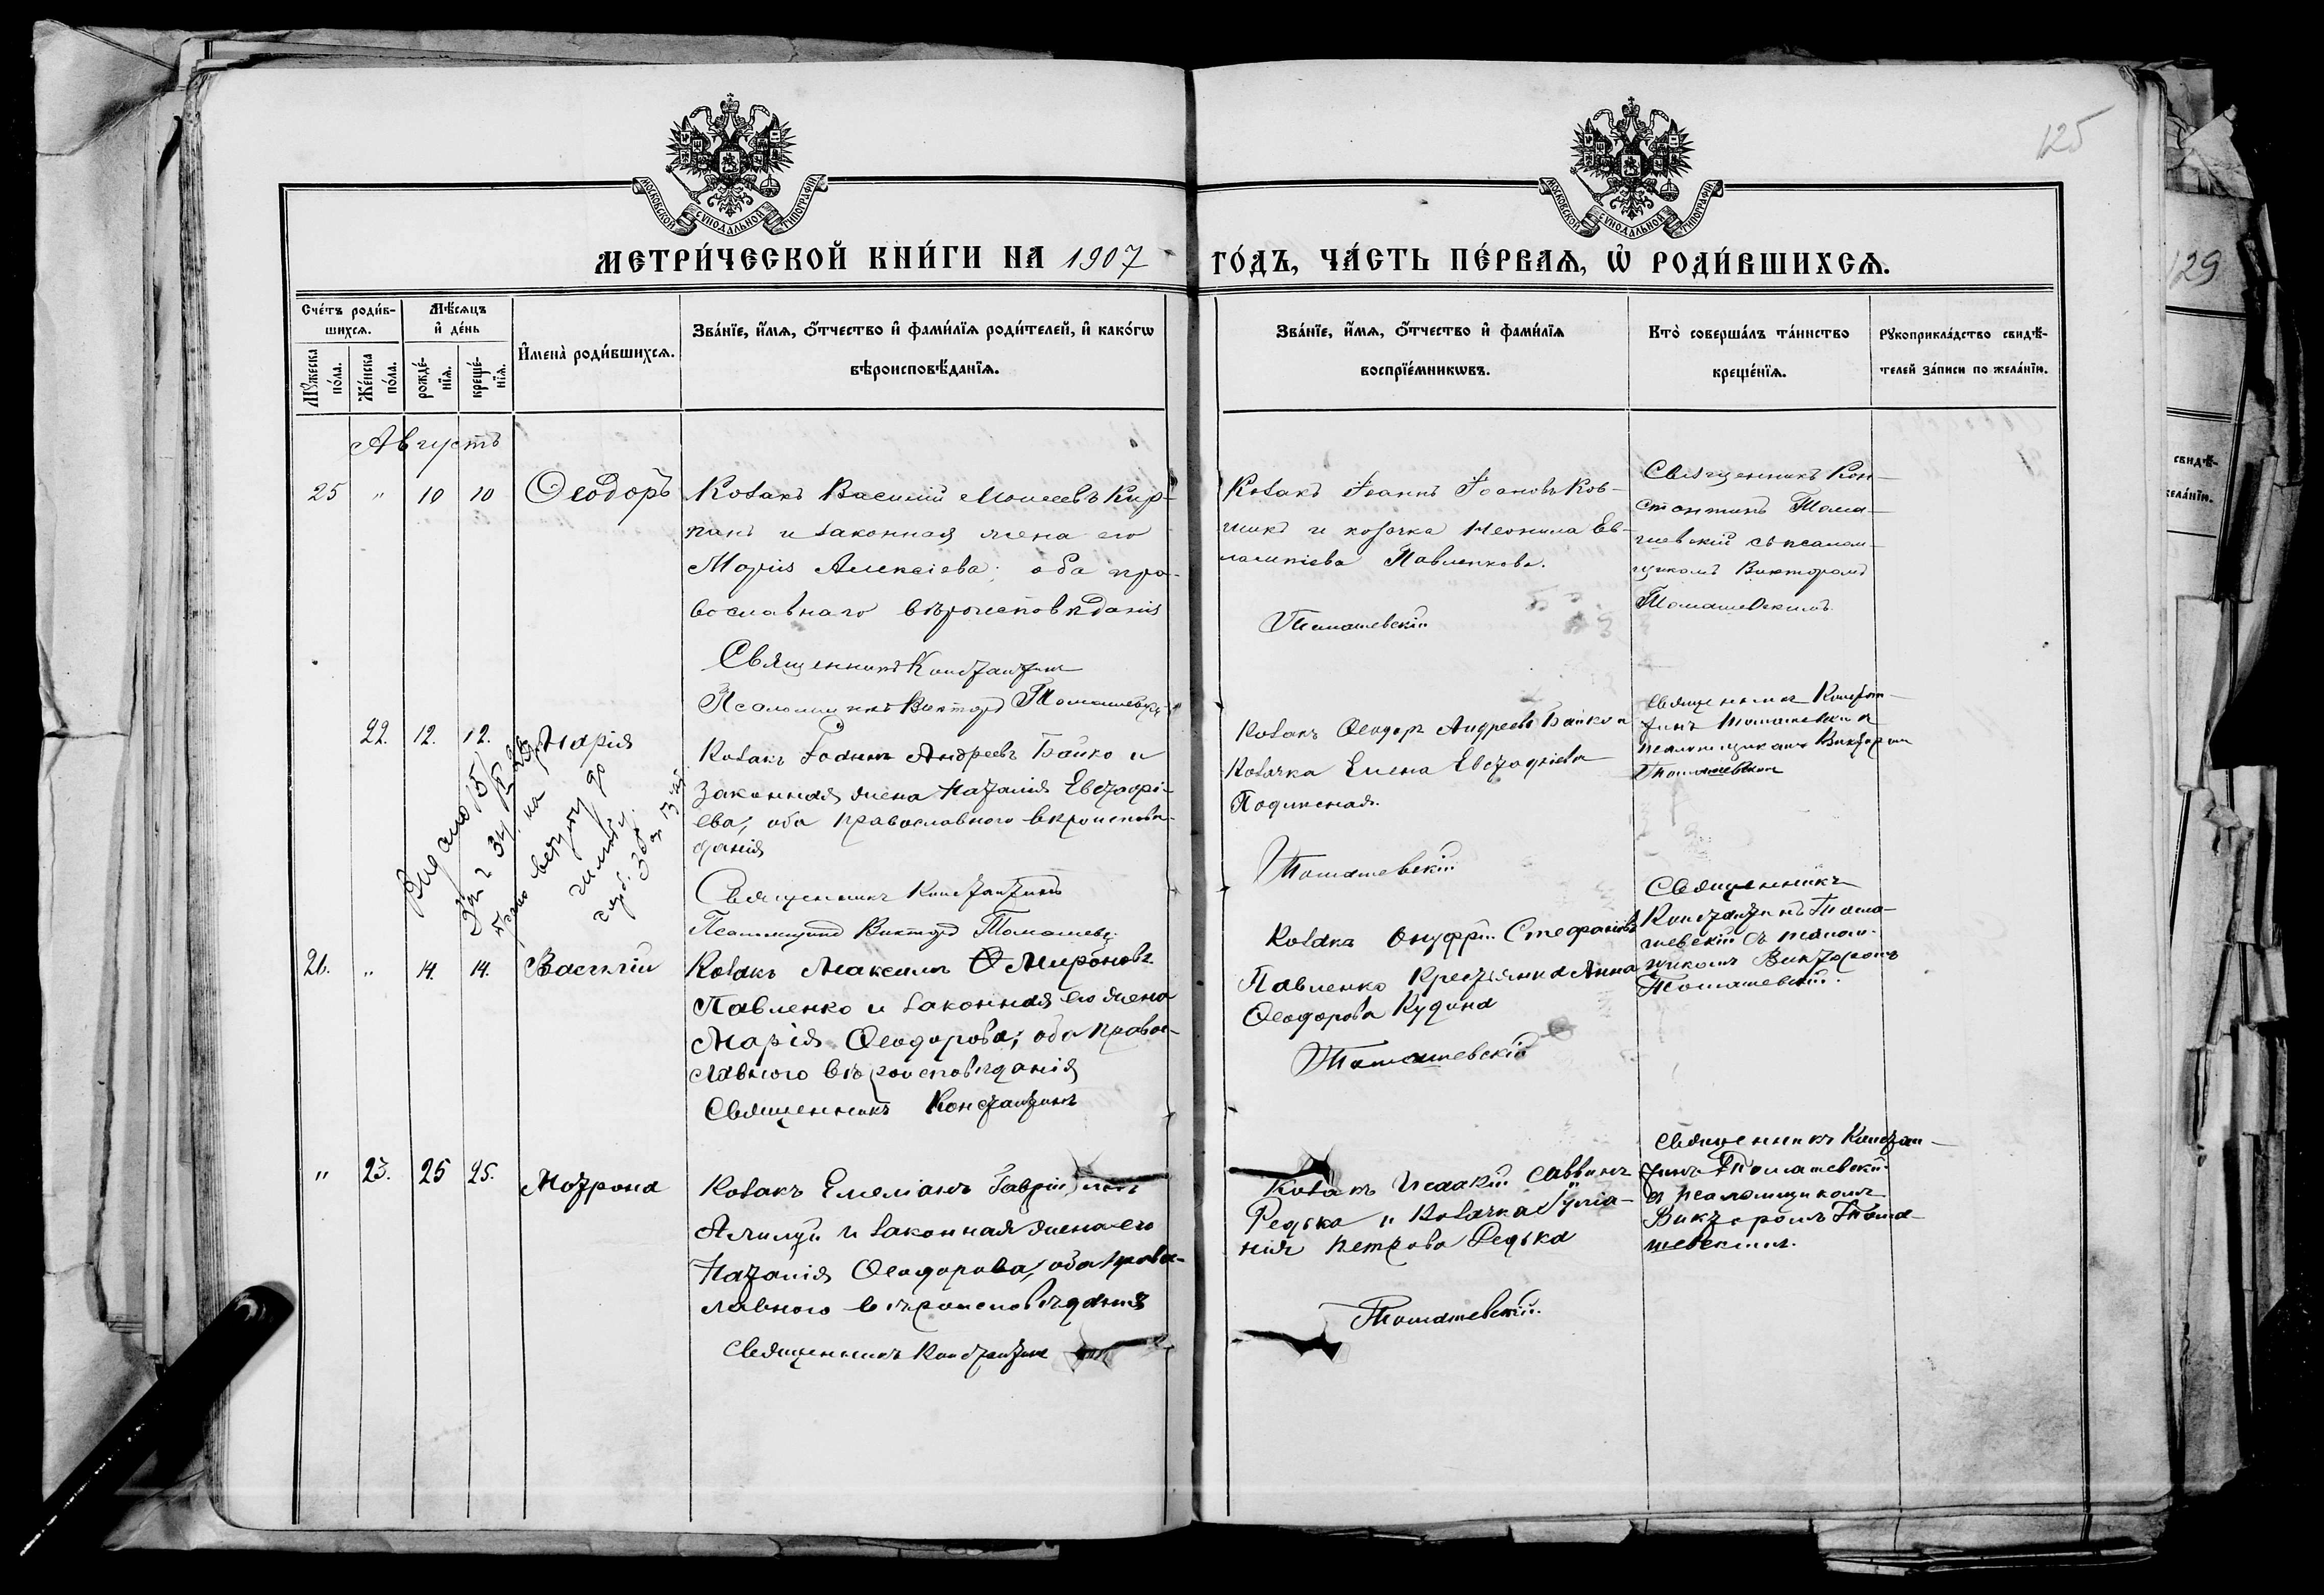 125
129
МОСКОВСКОЙ СѴНОДАЛЬНОЙ ТИПОГРАФІИ
МОСКОВСКОЙ СѴНОДАЛЬНОЙ ТИПОГРАФІИ
МЕТРИ́ЧЕСКОЙ КНИ́ГИ НА 1907
ГО́ДЪ, ЧА́СТЬ ПЕ́РВАѦ, Ѡ҆ РОДИ́ВШИХСѦ.
Сче́тъ роди́в-
шихсѧ.
Мꙋ́жеска по́ла.
Же́нска по́ла.
Мѣ́сѧцъ
и҆ де́нь
рожде́-
нїѧ.
креще́-
нїѧ.
И҆мена̀ роди́вшихсѧ.
Зва́нїе, и҆́мѧ, ѻ҆́тчество и҆ фами́лїѧ роди́телей, и҆ како́гѡ
вѣроисповѣ́данїѧ.
Зва́нїе, и҆́мѧ, ѻ҆́тчество и҆ фами́лїѧ
воспрїе́мникѡвъ.
Кто̀ соверша́лъ та́инство
креще́нїѧ.
Рꙋкоприкла́дство свидѣ́-
телей за́писи по жела́нїю.
свидѣ́-
жела́нїю.
Августъ
25 " 10 10 Ѳеодоръ
Козакъ Василій Моисеевъ Кир-
и законная жена его
Марія Алексіева; оба пра-
вославнаго вѣроисповѣданія
Священникъ Константин
Псаломщикъ Викторъ Томашевск
Козакъ Іоаннъ Іоановъ Ков-
и козачка Неонила Ев-
лампіева Павленкова.
Томашевскій
Священникъ Кон-
стантинъ Тома-
шевскій съ псалом-
щикомъ Викторомъ
Томашевскимъ.
22. 12. 12. Марія
Козакъ Андреевъ Бойко и
законная жена Наталія Евстафі-
ева; оба православного вѣроисповѣ-
данія
Священникъ Константинъ
Псаломщикъ Викторъ Томашевс
Козакъ Ѳеодоръ Андреевъ Бойко и
Козачка Елена Евстафіева
Томашевскій
Священникъ Констан-
тинъ Томашевскій
псаломщикомъ Викторомъ
Томашевским
Видано
26. " 14. 14. Василій
Козакъ Максимъ Мироновъ
Павленко и законная его жена
Марія Ѳеодорова; оба правос-
лавного вѣроисповѣданія
Священникъ Константинъ
Козакъ Онуфрій Стефановъ
Павленко Крестьянка Анна
Ѳеодорова Кудина
Томашевскій
Священникъ
Константинъ Тома-
шевскій съ псалом-
щикомъ Викторомъ
Томашевскій.
" 23. 25 25. Мотрона
Козакъ Емеліанъ
и законная жена его
Наталія Ѳеодорова, оба правос-
лавного вѣроисповѣданія
Священникъ Константинъ
Козакъ Исаакій Саввинъ
Редька и Козачка Іуліа-
нія Петрова Редька
Томашевскій.
Священникъ Констан-
тинъ Томашевскій
съ псаломщикомъ
Викторомъ Тома-
шевскимъ.